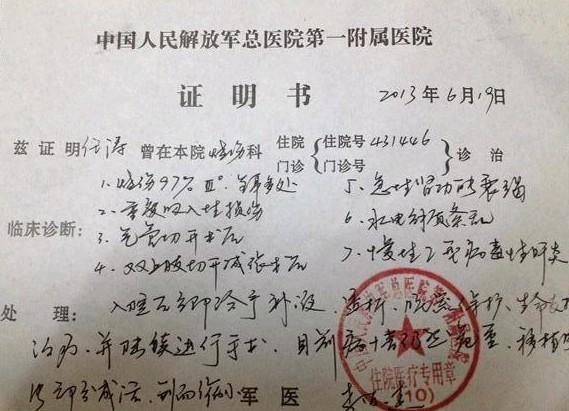 中国人民解放军总医院第一附属医院
证明书 2013年6月19日
兹证明任涛曾在本院烧伤科 住院 门诊 住院号431446 门诊号 诊治
临床诊断:
1. 烧伤97% Ⅲ°
2. 重度吸入性损伤
3. 气管切开术后
4. 双上肢切开减张术后
5. 急性肾功能衰竭
6. 水电解质紊乱
7. 慢性乙型病毒性肝炎
处理: 入院后即给予补液、透析、脏器保护、生命
治疗,并陆续进行手术,目前
部分成活,创面缩小 军医
住院医疗专用章
(10)